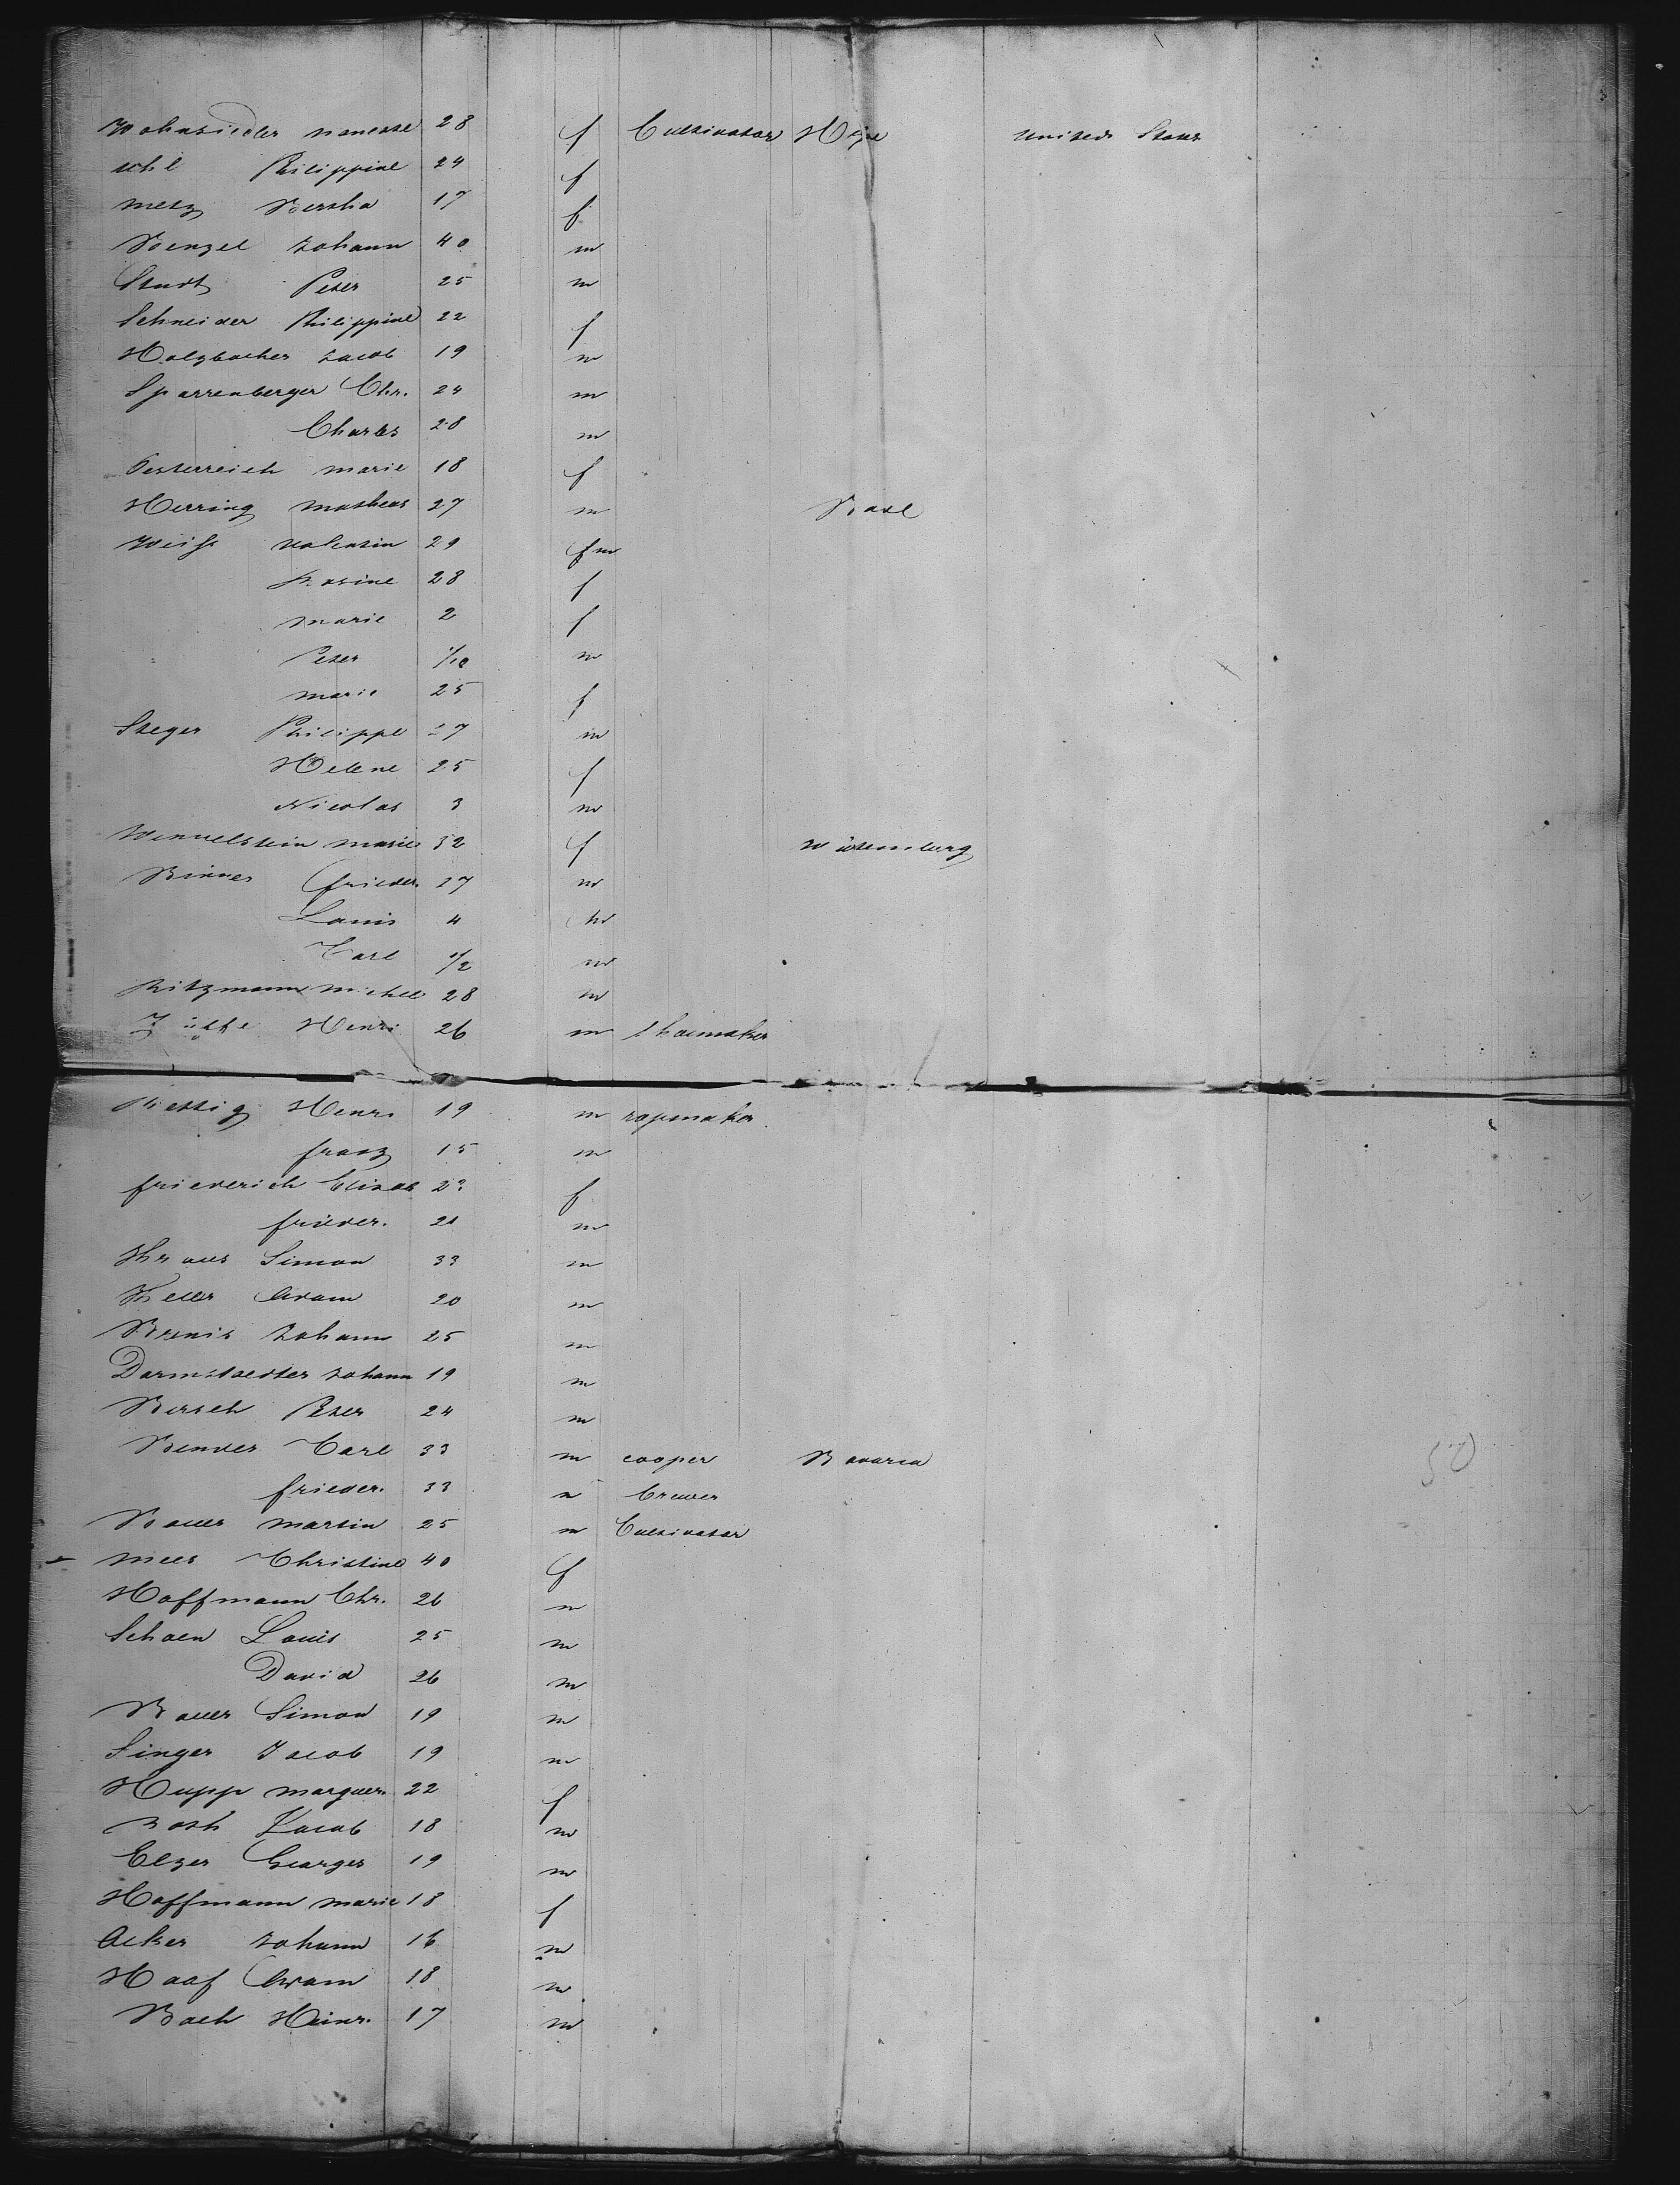 Wohnsiedler 28 f Cultivator United States
Philippine 24 f
Metz Bertha 17 f
Wenzel Johann 40 m
Studt Peter 25 m
Schneider Philippine 22 f
Holzbacher Jacob 19 m
Sparrenberger Chr. 24 m
Charles 28 m
Oesterreich Marie 18 f
Herring Matheas 27 m
Weiss Valentin 29 m
Rosine 28 f
Marie 2 f
Peter m
Marie 25 f
Steger Philippe 27 m
Helene 25 f
Nicolas 3 m
Marie 32 f Würtemberg
Frieder. 27 m
Louis 4 m
Carl 1/2 m
Ritzmann Michel 28 m
Henri 26 m Shoemaker
Rettig Henri 19 m ropemaker
franz 15 m
friederich Elisab f
frieder. 21 m
Kraus Simon 33 m
Keller Adam 20 m
Johann 25 m
Darmstaedter Johann 19 m
Bersch Peter 24 m
Bender Carl 33 m cooper Bavaria
frieder. 33 m Brewer
Bauer Martin 25 m Cultivator
Mees Christine 40 f
Hoffmann Chr. 26 m
Schoen Louis 25 m
David 26 m
Bauer Simon 19 m
Singer Jacob 19 m
Hupp Marguer. 22 f
Roth Jacob 18 m
Elzer Georges 19 m
Hoffmann Marie 18 f
Acker Johann 16 m
Haaf Adam 18 m
Bach Heinr. 17 m